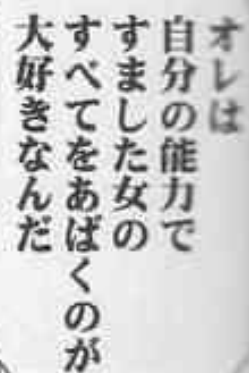 オレは
自分の能力で
すました女の
すべてをあばくのが
大好きなんだ